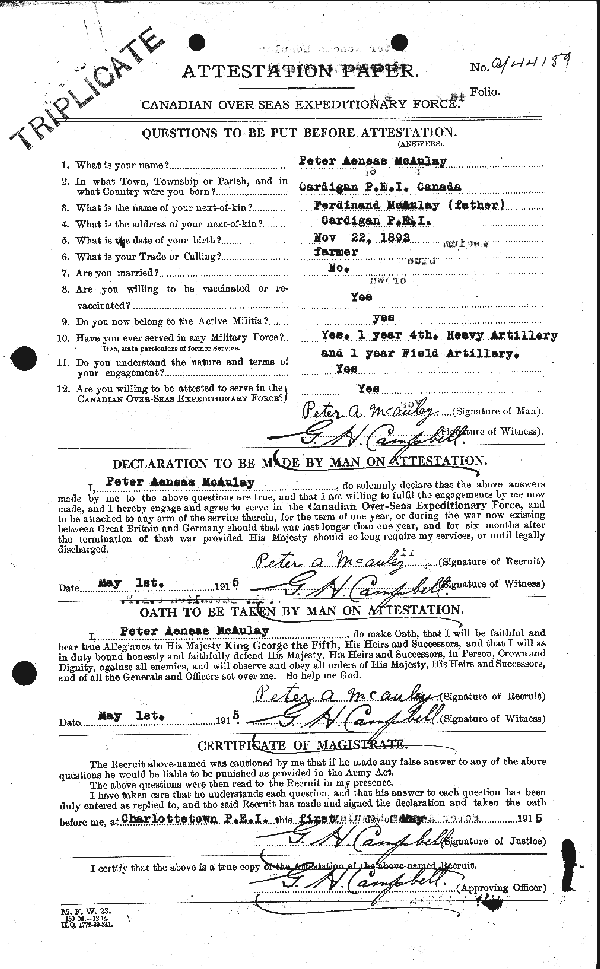 TRIPLICATE
ATTESTATION PAPER.
No. a/44159
Folio.
CANADIAN OVER SEAS EXPEDITIONARY FORCE.
QUESTIONS TO BE PUT BEFORE ATTESTATION.
(ANSWERS).
1. What is your name? Peter Aeneas McAulay
2. In what Town, Township or Parish, and in
what Country were you born? Cardigan P.E.I. Canada
3. What is the name of your next-of-kin? Ferdinand McAulay (father)
4. What is the address of your next-of-kin? Cardigan P.E.I.
5. What is the date of your birth? Nov 22, 1892
6. What is your Trade or Calling? farmer
7. Are you married? No.
8. Are you willing to be vaccinated or re-
vaccinated? Yes
9. Do you now belong to the Active Militia? yes
10. Have you ever served in any Military Force? Yes. 1 year 4th. Heavy Artillery
If so, state particulars of former Service. and 1 year Field Artillery.
11. Do you understand the nature and terms of
your engagement? Yes
12. Are you willing to be attested to serve in the
CANADIAN OVER-SEAS EXPEDITIONARY FORCE? Yes
Peter A McAulay (Signature of Man).
G H Campbell (Signature of Witness).
DECLARATION TO BE MADE BY MAN ON ATTESTATION.
I, Peter Aeneas McAulay, do solemnly declare that the above answers
made by me to the above questions are true, and that I am willing to fulfil the engagements by me now
made, and I hereby engage and agree to serve in the Canadian Over-Seas Expeditionary Force, and
to be attached to any arm of the service therein, for the term of one year, or during the war now existing
between Great Britain and Germany should that war last longer than one year, and for six months after
the termination of that war provided His Majesty should so long require my services, or until legally
discharged.
Peter A McAulay (Signature of Recruit)
Date May 1st. 1915 G H Campbell (Signature of Witness)
OATH TO BE TAKEN BY MAN ON ATTESTATION.
I, Peter Aeneas McAulay, do make Oath, that I will be faithful and
bear true Allegiance to His Majesty King George the Fifth, His Heirs and Successors, and that I will as
in duty bound honestly and faithfully defend His Majesty, His Heirs and Successors, in Person, Crown and
Dignity, against all enemies, and will observe and obey all orders of His Majesty, His Heirs and Successors,
and of all the Generals and Officers set over me. So help me God.
Peter A McAulay (Signature of Recruit)
Date May 1st. 1915 G H Campbell (Signature of Witness)
CERTIFICATE OF MAGISTRATE.
The Recruit above-named was cautioned by me that if he made any false answer to any of the above
questions he would be liable to be punished as provided in the Army Act.
The above questions were then read to the Recruit in my presence.
I have taken care that he understands each question, and that his answer to each question has been
duly entered as replied to, and the said Recruit has made and signed the declaration and taken the oath
before me, at Charlottetown P.E.I. this first day of May 1915
G H Campbell (Signature of Justice)
I certify that the above is a true copy of the Attestation of the above-named Recruit.
G H Campbell (Approving Officer)
M. F. W. 23.